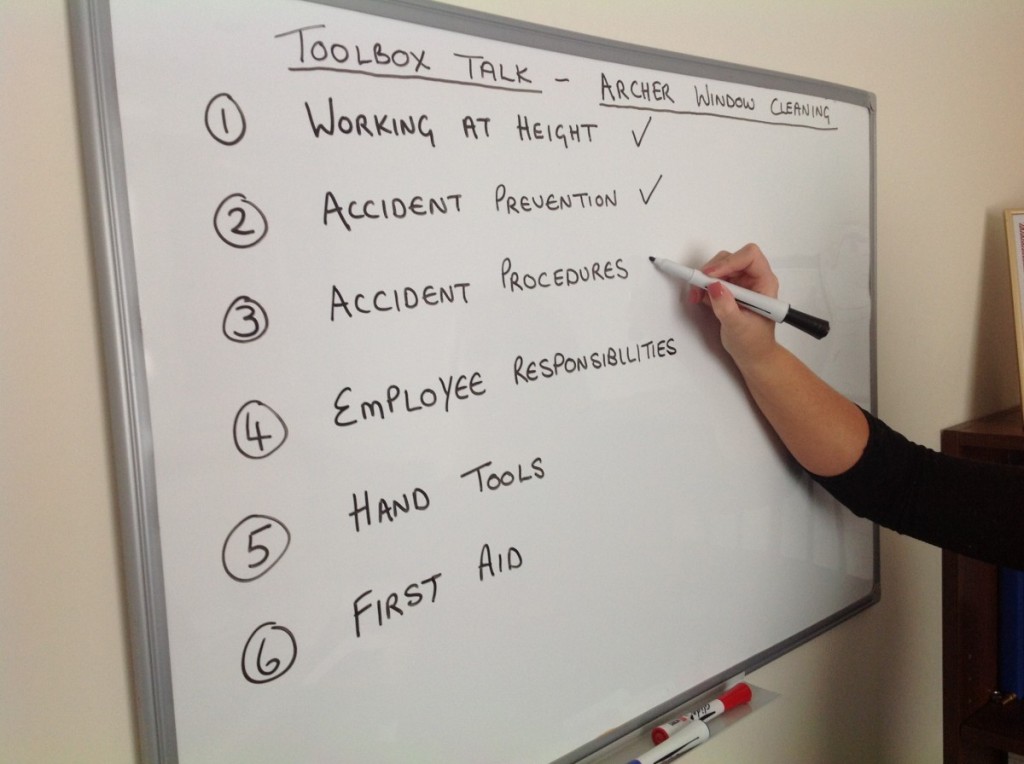 TOOLBOX TALK - ARCHER WINDOW CLEANING
1 WORKING AT HEIGHT ✓
2 ACCIDENT PREVENTION ✓
3 ACCIDENT PROCEDURES
4 EMPLOYEE RESPONSIBILITIES
5 HAND TOOLS
6 FIRST AID